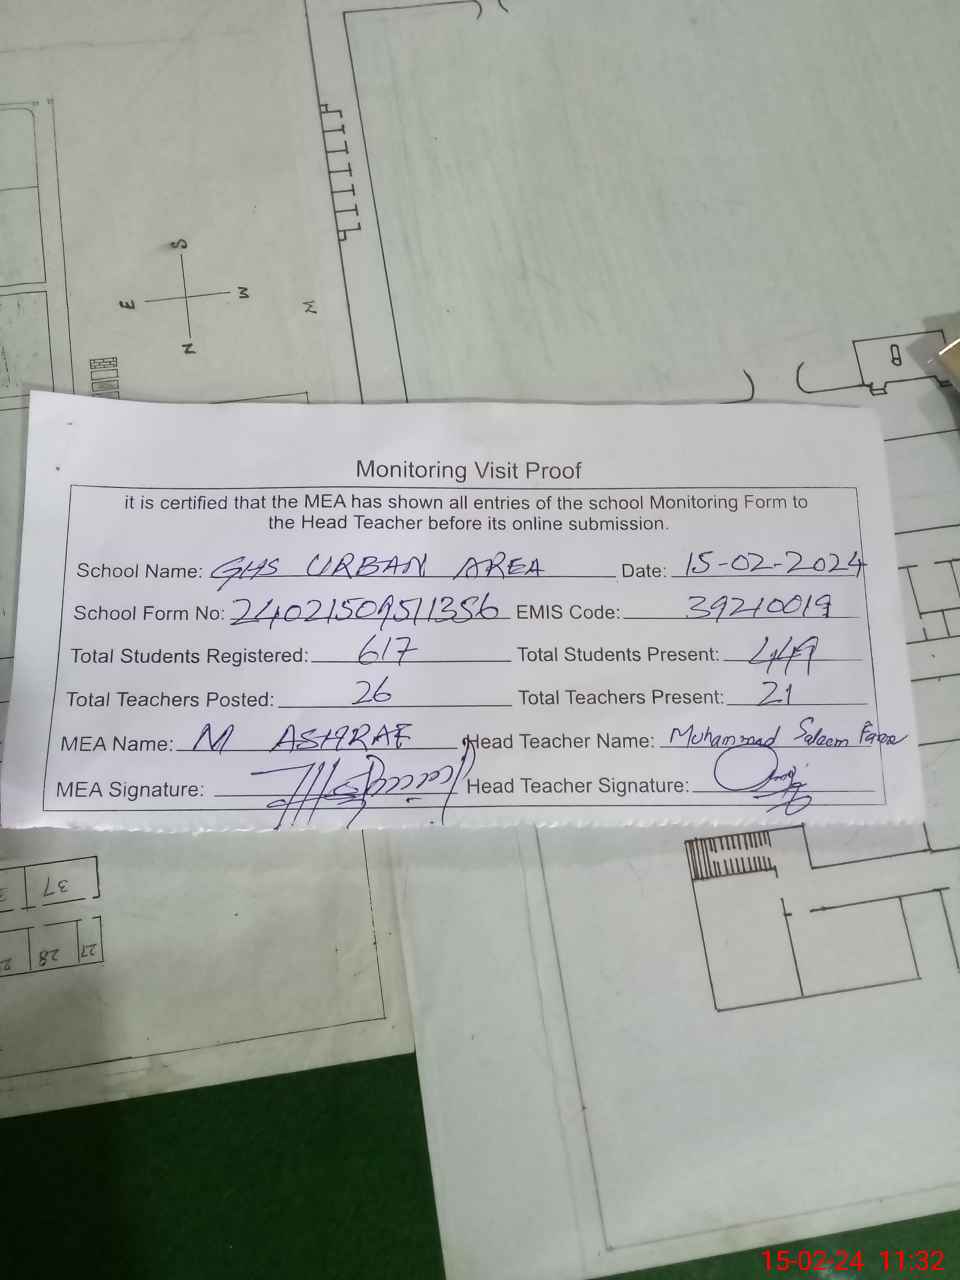 S
E
W
N
M
Monitoring Visit Proof
it is certified that the MEA has shown all entries of the school Monitoring Form to
the Head Teacher before its online submission.
School Name: GHS URBAN AREA Date: 15-02-2024
School Form No: 24021509511356 EMIS Code: 39210019
Total Students Registered: 617 Total Students Present: 449
Total Teachers Posted: 26 Total Teachers Present: 21
MEA Name: M ASHRAF Head Teacher Name: Muhammad Saleem
MEA Signature: Head Teacher Signature:
37
28 27
15-02-24 11:32